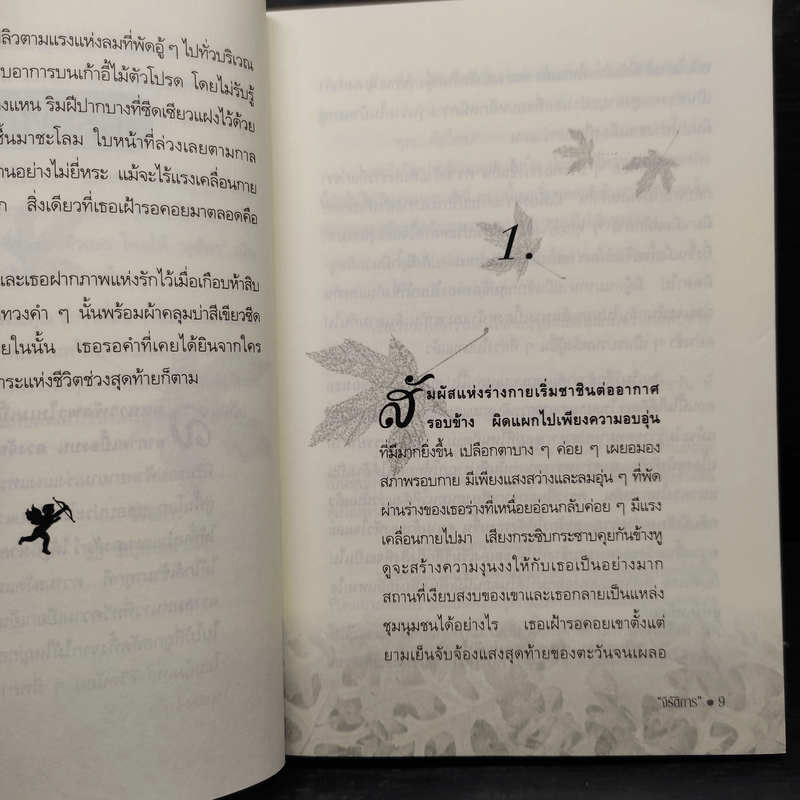 ปลิวตามแรงแห่งลมที่พัดอู้ ๆ ไปทั่วบริเวณ
บอาการบนเก้าอี้ไม้ตัวโปรด โดยไม่รับรู้
แหน ริมฝีปากบางที่ซีดเซียวแฝงไว้ด้วย
ชื้นมาชะโลม ใบหน้าที่ล่วงเลยตามกาล
านอย่างไม่ยี่หระ แม้จะไร้แรงเคลื่อนกาย
ก สิ่งเดียวที่เธอเฝ้ารอคอยมาตลอดคือ
และเธอฝากภาพแห่งรักไว้เมื่อเกือบห้าสิบ
ทวงคำ ๆ นั้นพร้อมผ้าคลุมบ่าสีเขียวซีด
ยในนั้น เธอรอคำที่เคยได้ยินจากใคร
าระแห่งชีวิตช่วงสุดท้ายก็ตาม
1.
สัมผัสแห่งร่างกายเริ่มชาชินต่ออากาศ
รอบข้าง ผิดแผกไปเพียงความอบอุ่น
ที่มีมากยิ่งขึ้น เปลือกตาบาง ๆ ค่อย ๆ เผยอมอง
สภาพรอบกาย มีเพียงแสงสว่างและลมอุ่น ๆ ที่พัด
ผ่านร่างของเธอร่างที่เหนื่อยอ่อนกลับค่อย ๆ มีแรง
เคลื่อนกายไปมา เสียงกระซิบกระซาบคุยกันข้างหู
ดูจะสร้างความงุนงงให้กับเธอเป็นอย่างมาก
สถานที่เงียบสงบของเขาและเธอกลายเป็นแหล่ง
ชุมนุมชนได้อย่างไร เธอเฝ้ารอคอยเขาตั้งแต่
ยามเย็นจับจ้องแสงสุดท้ายของตะวันจนเผลอ
"จิรัติการ" • 9